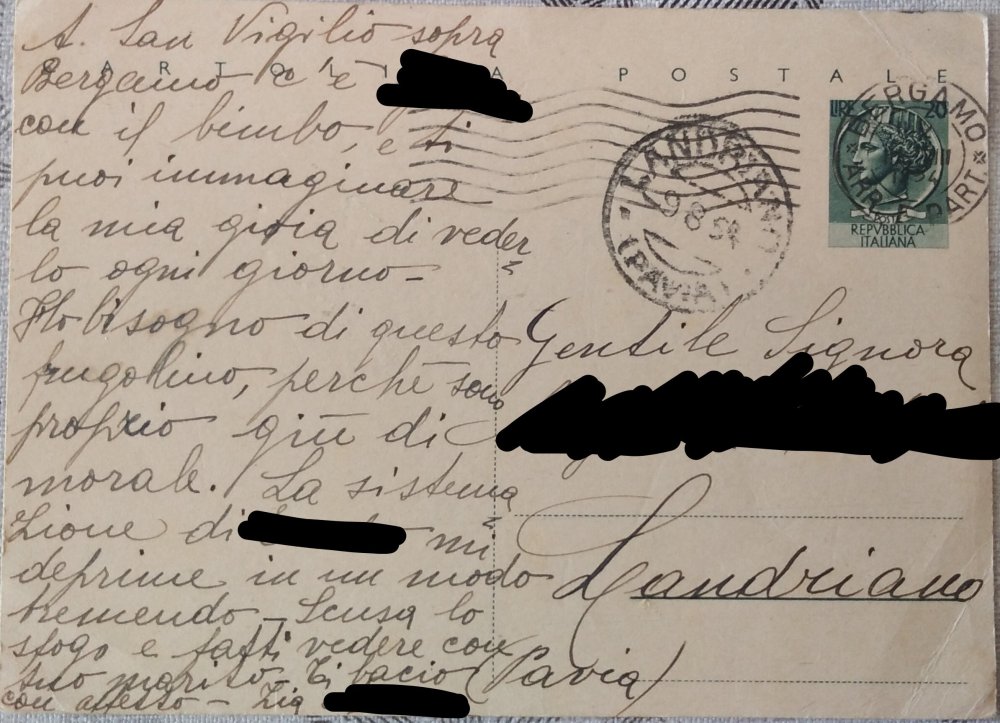 A San Vigilio sopra
Bergamo c'è
con il bimbo, e ti
puoi immaginare
la mia gioia di veder
lo ogni giorno -
Ho bisogno di questo
frugolino, perchè sono
proprio giù di
morale. La sistema
zione di mi
deprime in un modo
tremendo - Scusa lo
sfogo e fatti vedere con
tuo marito - Ti bacio
con affetto - Zia
CARTOLINA POSTALE
LIRE 20
REPVBBLICA
ITALIANA
BERGAMO
LANDRIANO
9 8 54
(PAVIA)
Gentile Signora
Landriano
(Pavia)